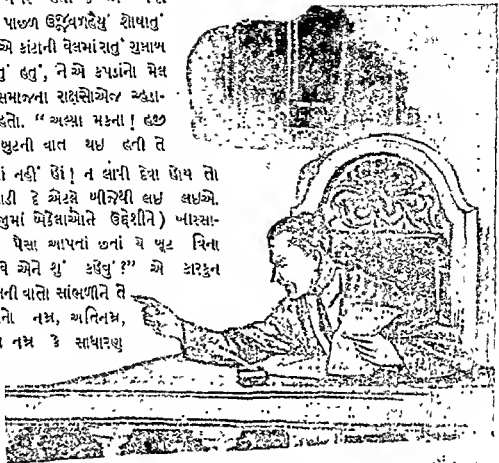 પાછળ ઉર્જ્જવળહૈયું શોષાતું
એ કાંટાની વેલમાં રાતું ગુલાબ
તું હતું, ને એ કપડાંનો મેલ
સમાજના રાક્ષસોએજ ચ્હડા-
હતો. “ અલ્યા મકના ! હજી
બુટની વાત થઇ હતી તે
નહીં ઊં ! ન લાવી દેવા હોય તો
દે એટલે બીજેથી લઇ લઇએ.
બેઠેલાઓને ઉદ્દેશીને ) ખાસ્સા-
પૈસા આપતાં છતાં યે બૂટ વિના
એને શું કહેવું ?” એ કારકુન
વાતો સાંભળીને તે
નમ્ર, અતિનમ્ર,
નમ્ર કે સાધારણ